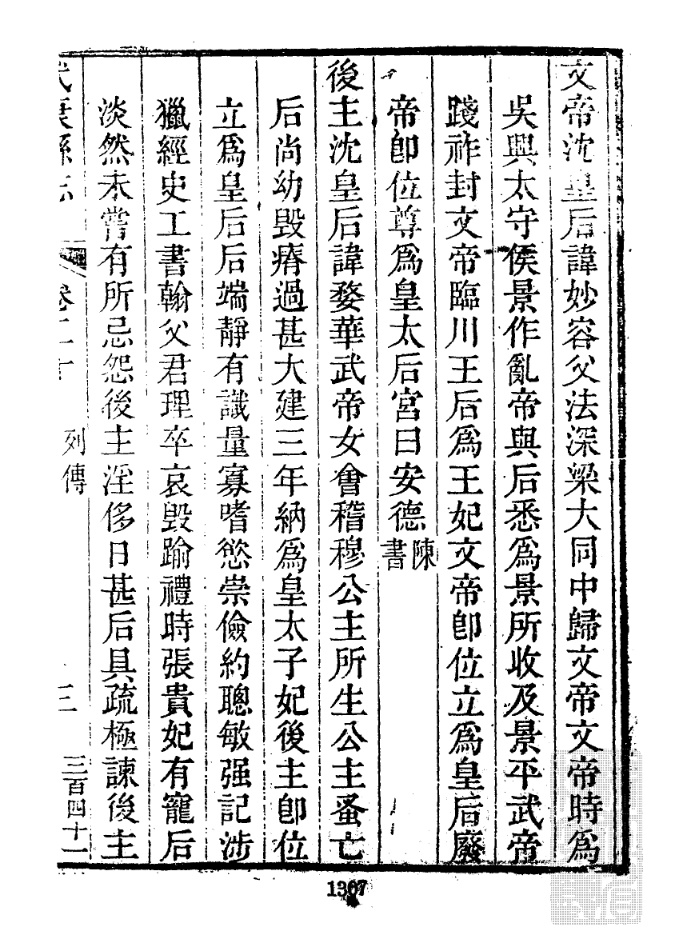 文帝沈皇后諱妙容父法深梁大同中歸文帝文帝時爲
吳興太守侯景作亂帝與后悉爲景所收及景平武帝
踐祚封文帝臨川王后爲王妃文帝卽位立爲皇后廢
帝卽位尊爲皇太后宮曰安德陳書
後主沈皇后諱婺華武帝女會稽穆公主所生公主蚤亡
后尚幼毀瘠過甚大建三年納爲皇太子妃後主卽位
立爲皇后后端靜有識量寡嗜慾崇儉約聰敏强記涉
獵經史工書翰父君理卒哀毀踰禮時張貴妃有寵后
淡然未嘗有所忌怨後主淫侈日甚后具疏極諫後主
武康縣志 卷二十 列傳 三 三百四十二
1307